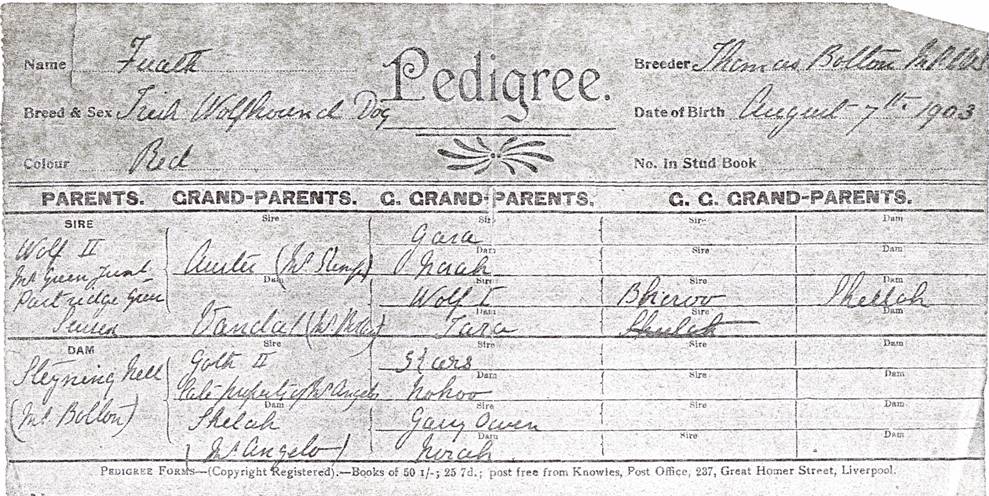 Pedigree.
Name Fuath
Breeder Thomas Bolton
Breed & Sex Irish Wolfhound Dog
Date of Birth August 7th 1903
Colour Red
No. in Stud Book
PARENTS. GRAND-PARENTS. G. GRAND-PARENTS. G. G. GRAND-PARENTS.
SIRE
Wolf II
Mr Green
Partridge Green
Sussex
Sire
(Mr
Dam
Vandal (Mr
Sire
Gara
Dam
Norah
Sire
Wolf I
Dam
Tara
Sire Dam
Sire Dam
Sire Dam
Bhicroo Shellah
Sire Dam
DAM
Steyning Nell
(Mr Bolton)
Sire
Goth II
late property of Mr Angelo
Dam
Shelah
(Mr Angelo)
Dam
Nohoo
Sire
Gary Owen
Dam
Norah
Sire Dam
Sire Dam
Sire Dam
Sire Dam
PEDIGREE FORMS—(Copyright Registered).—Books of 50 1/-; 25 7d.; post free from Knowles, Post Office, 237, Great Homer Street, Liverpool.